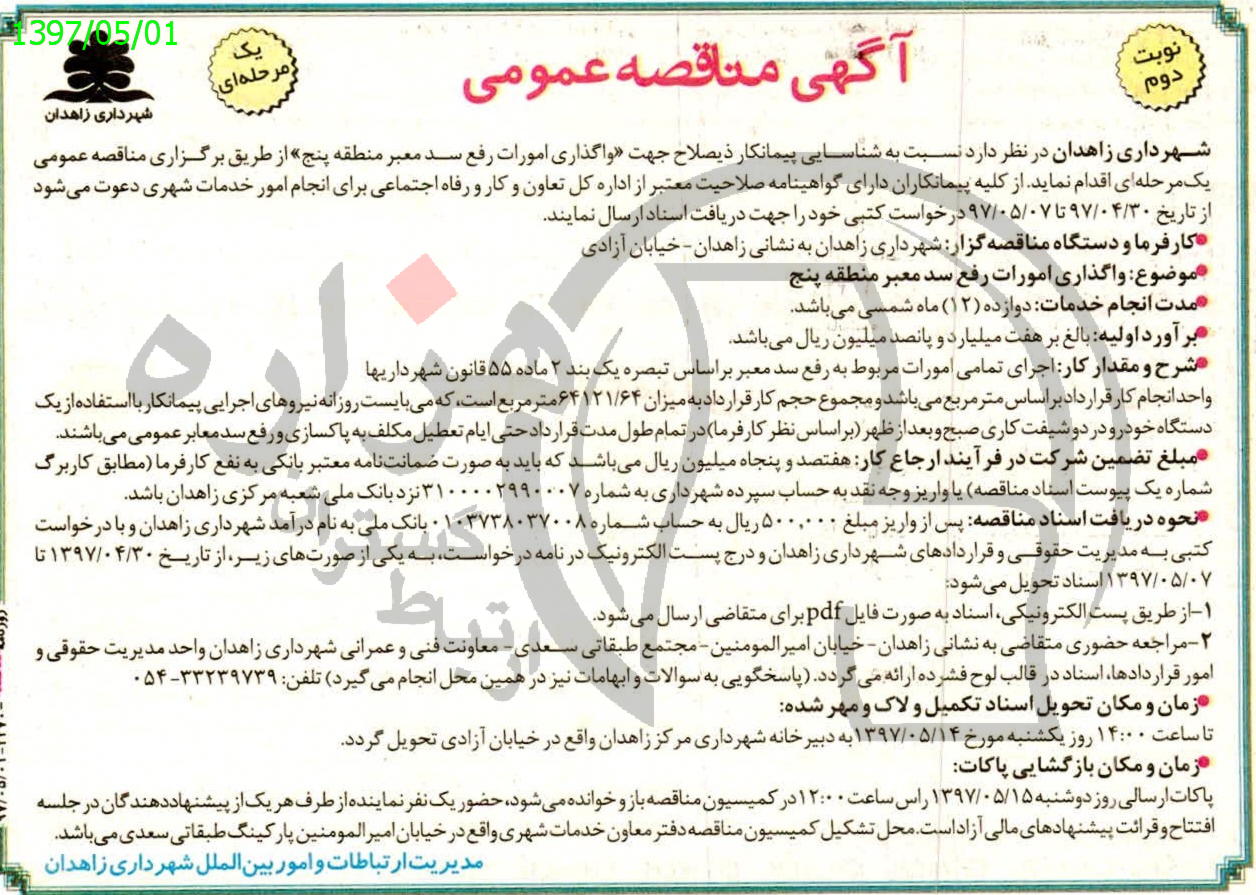 1397/05/01
نوبت
دوم
آگهی مناقصه عمومی
یک
مرحله‌ای
شهرداری زاهدان
شهرداری زاهدان در نظر دارد نسبت به شناسایی پیمانکار ذیصلاح جهت «واگذاری امورات رفع سد معبر منطقه پنج» از طریق برگزاری مناقصه عمومی
یک‌مرحله‌ای اقدام نماید. از کلیه پیمانکاران دارای گواهینامه صلاحیت معتبر از اداره کل تعاون و کار و رفاه اجتماعی برای انجام امور خدمات شهری دعوت می‌شود
از تاریخ ۹۷/۰۴/۳۰ تا ۹۷/۰۵/۰۷ درخواست کتبی خود را جهت دریافت اسناد ارسال نمایند.
•کارفرما و دستگاه مناقصه‌گزار: شهرداری زاهدان به نشانی زاهدان - خیابان آزادی
•موضوع: واگذاری امورات رفع سد معبر منطقه پنج
•مدت انجام خدمات: دوازده (۱۲) ماه شمسی می‌باشد.
•برآورد اولیه: بالغ بر هفت میلیارد و پانصد میلیون ریال می‌باشد.
•شرح و مقدار کار: اجرای تمامی امورات مربوط به رفع سد معبر براساس تبصره یک بند ۲ ماده ۵۵ قانون شهرداریها
واحد انجام کار قرارداد براساس متر مربع می‌باشد و مجموع حجم کار قرارداد به میزان ۶۴۱۲۱/۶۴ متر مربع است، که می‌بایست روزانه نیروهای اجرایی پیمانکار با استفاده از یک
دستگاه خودرو در دو شیفت کاری صبح و بعد از ظهر (براساس نظر کارفرما) در تمام طول مدت قرارداد حتی ایام تعطیل مکلف به پاکسازی و رفع سد معابر عمومی می‌باشند.
•مبلغ تضمین شرکت در فرآیند ارجاع کار: هفتصد و پنجاه میلیون ریال می‌باشد که باید به صورت ضمانت‌نامه معتبر بانکی به نفع کارفرما (مطابق کاربرگ
شماره یک پیوست اسناد مناقصه) یا واریز وجه نقد به حساب سپرده شهرداری به شماره ۳۱۰۰۰۰۰۲۹۹۰۰۰۷ نزد بانک ملی شعبه مرکزی زاهدان باشد.
•نحوه دریافت اسناد مناقصه: پس از واریز مبلغ ۵۰۰,۰۰۰ ریال به حساب شماره ۰۱۰۳۷۳۸۰۳۷۰۰۸ بانک ملی به نام درآمد شهرداری زاهدان و با درخواست
کتبی به مدیریت حقوقی و قراردادهای شهرداری زاهدان و درج پست الکترونیک در نامه درخواست، به یکی از صورت‌های زیر، از تاریخ ۱۳۹۷/۰۴/۳۰ تا
۱۳۹۷/۰۵/۰۷ اسناد تحویل می‌شود:
۱- از طریق پست الکترونیکی، اسناد به صورت فایل pdf برای متقاضی ارسال می‌شود.
۲- مراجعه حضوری متقاضی به نشانی زاهدان - خیابان امیرالمومنین - مجتمع طبقاتی سعدی - معاونت فنی و عمرانی شهرداری زاهدان واحد مدیریت حقوقی و
امور قراردادها، اسناد در قالب لوح فشرده ارائه می‌گردد. (پاسخگویی به سوالات و ابهامات نیز در همین محل انجام می‌گیرد) تلفن: ۳۳۲۳۹۷۳۹-۰۵۴
•زمان و مکان تحویل اسناد تکمیل و لاک و مهر شده:
تا ساعت ۱۴:۰۰ روز یکشنبه مورخ ۱۳۹۷/۰۵/۱۴ به دبیرخانه شهرداری مرکز زاهدان واقع در خیابان آزادی تحویل گردد.
•زمان و مکان بازگشایی پاکات:
پاکات ارسالی روز دوشنبه ۱۳۹۷/۰۵/۱۵ راس ساعت ۱۲:۰۰ در کمیسیون مناقصه باز و خوانده می‌شود، حضور یک نفر نماینده از طرف هر یک از پیشنهاددهندگان در جلسه
افتتاح و قرائت پیشنهادهای مالی آزاد است. محل تشکیل کمیسیون مناقصه دفتر معاون خدمات شهری واقع در خیابان امیرالمومنین پارکینگ طبقاتی سعدی می‌باشد.
مدیریت ارتباطات و امور بین‌الملل شهرداری زاهدان
هزاره
گستران
ارتباط